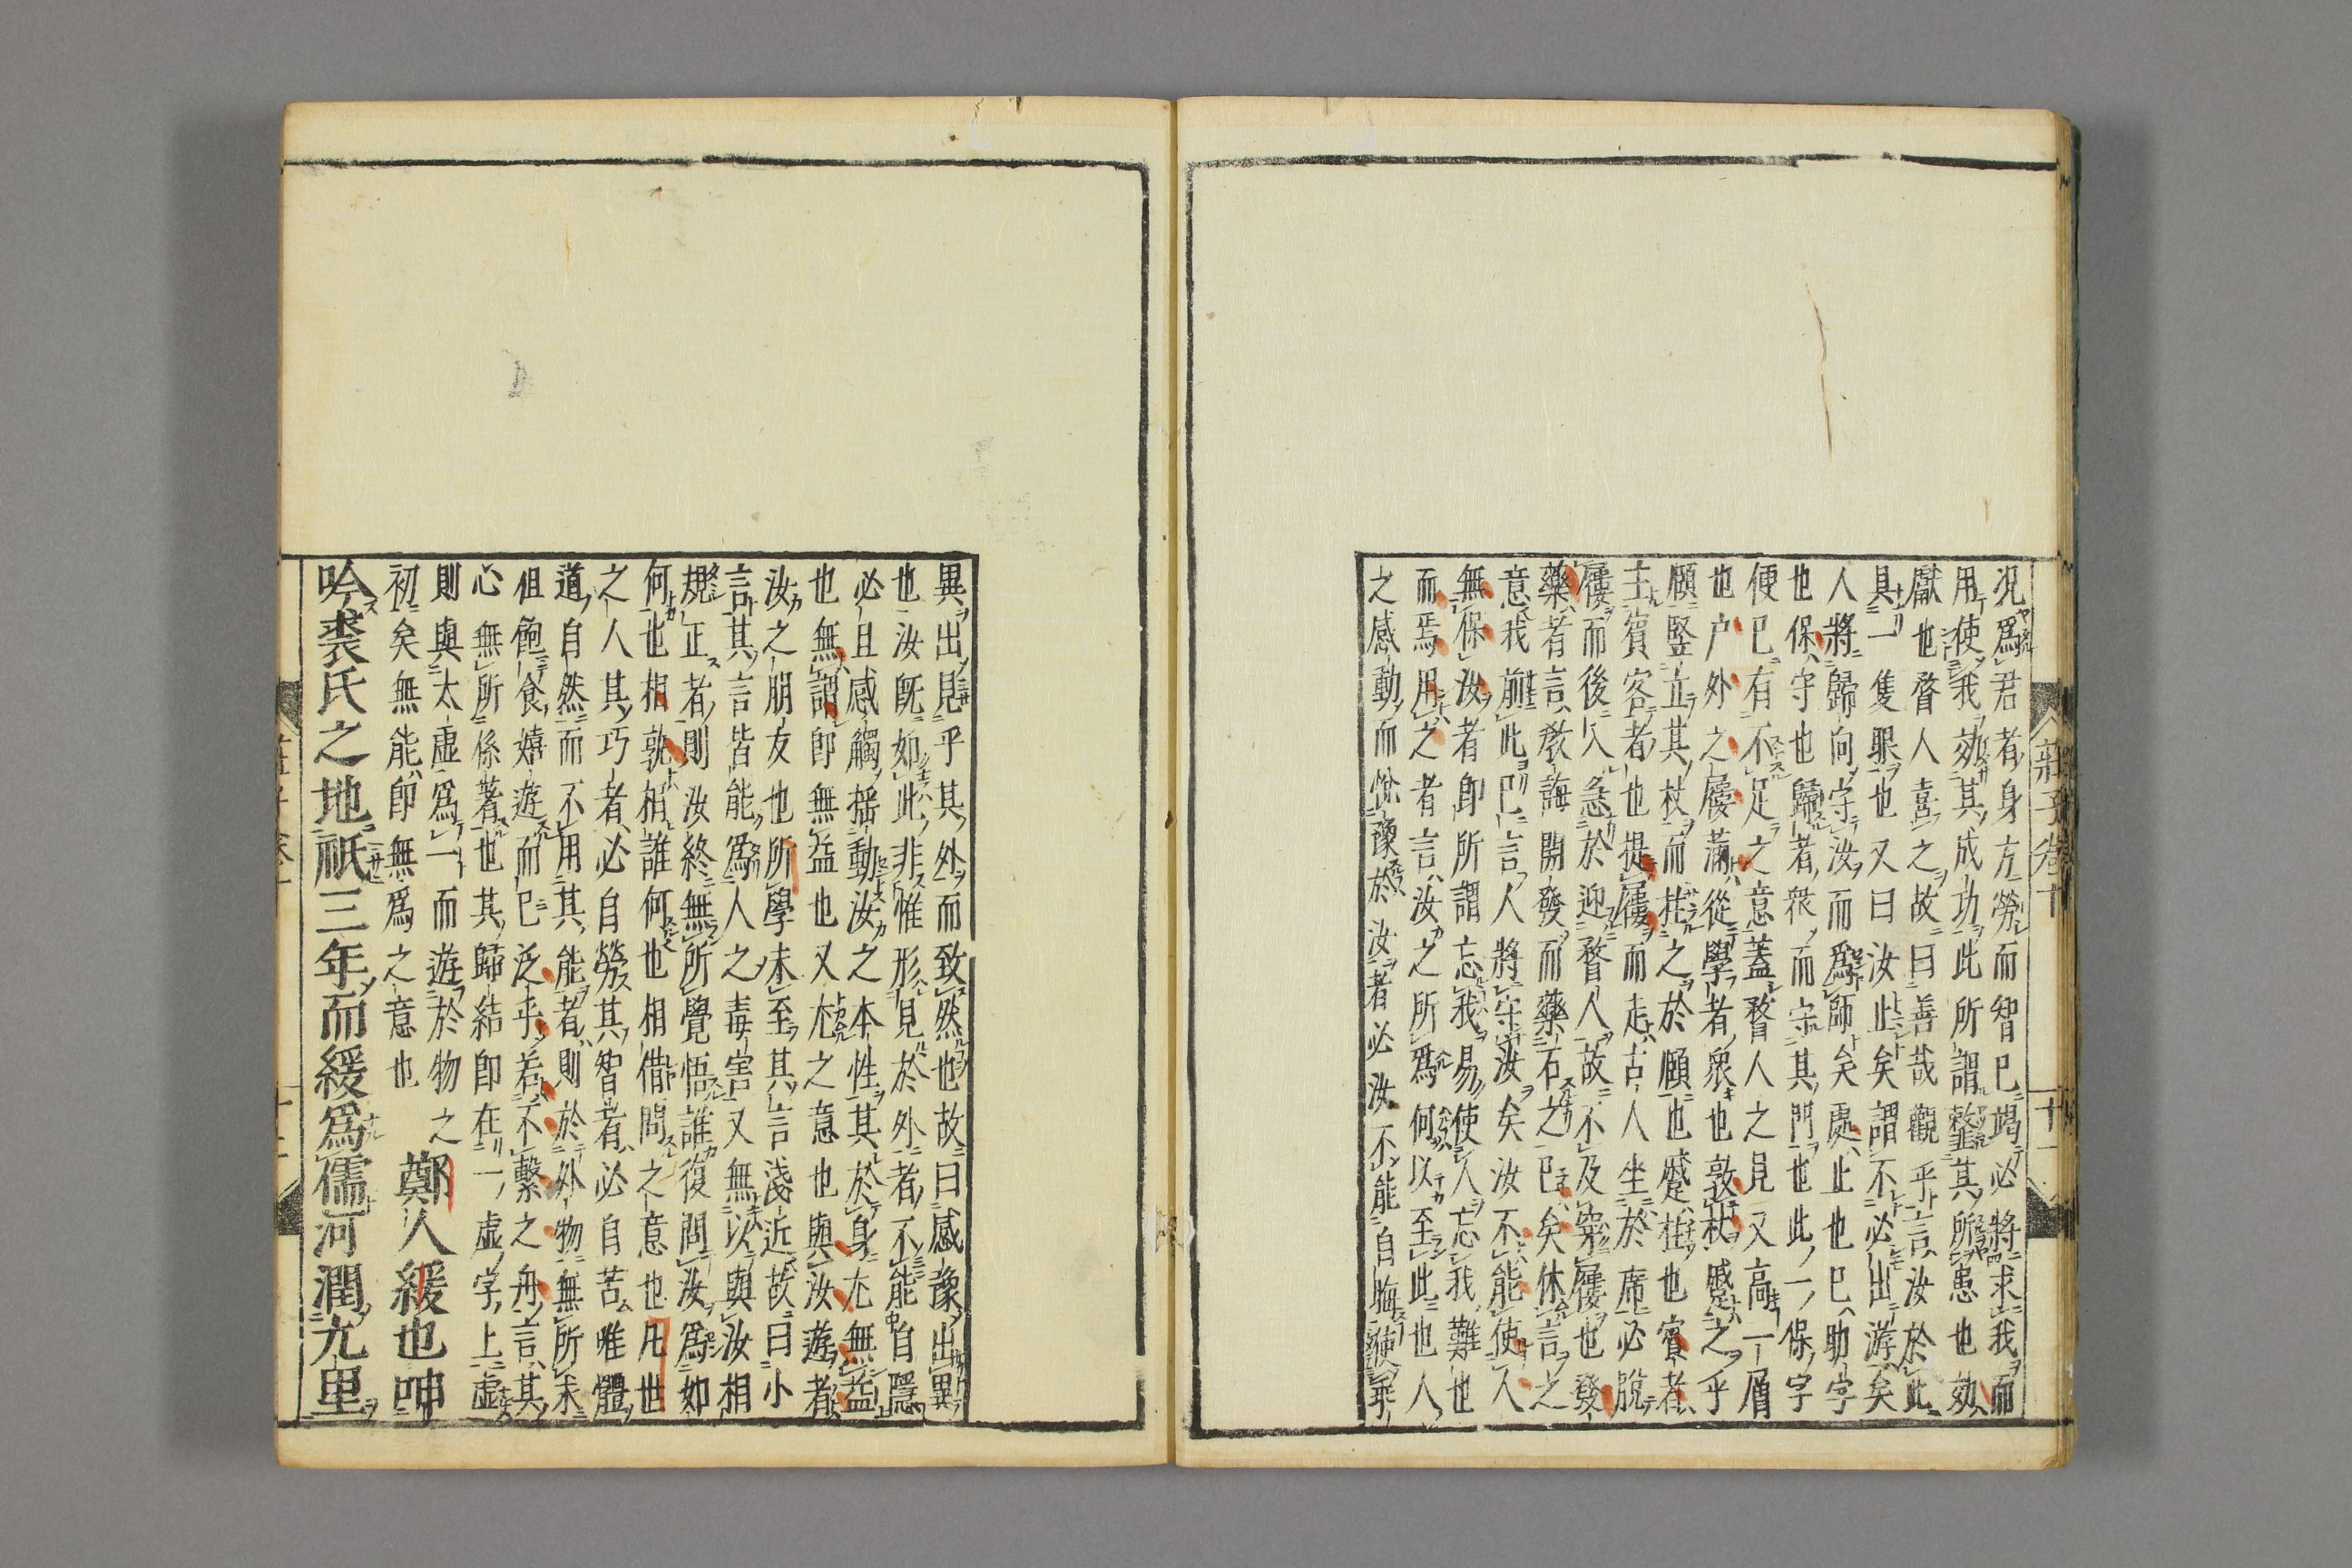 況爲君者身方勞而智已竭必將求我而
用使我效其成功此所謂整其所患也效
厭也瞀人喜之故曰善哉觀乎言汝於此
具一隻眼也又曰汝止矣謂不必出游矣
人將歸向守汝而爲師矣處止也已助字
也保守也歸者衆而守其門也此一保字
便已有不足之意蓋瞀人之見又高一層
也户外之屨滿從學者衆也敦杖蹙之乎
頤豎立其杖而拄之於頤也蹙拄也賓者
主賓客者也提屨而走古人坐於席必脫
屨而後入急於迎瞀人故不及穿屨也發
藥者言教誨開發而藥石之已矣休言之
意我前此已言人將守汝矣汝不能使人
無保汝者即所謂忘我易使人忘我難也
而焉用之者言汝之所爲何以至此也人
之感動而悅豫於汝者必汝不能自晦使乖
莊子卷十
十一
異出見乎其外而致然也故曰感豫出異
也汝既如此非惟形見於外者不能自隱
必且感觸搖動汝之本性其於身尤無益
也無謂即無益也又尤之意也與汝遊者
汝之朋友也所學未至其言淺近故曰小
言其言皆能爲人之毒害又無以與汝相
規正者則汝終無所覺悟誰復問汝爲如
何也相孰相誰何也相借問之意也凡世
之人其巧者必自勞其智者必自苦唯體
道自然而不用其能者則於外物無所求
但飽食嬉遊而已泛乎若不繫之舟言其
心無所係著也其歸結即在一虛字上虛
則與太虛爲一而遊於物之
初矣無能即無爲之意也 鄭人緩也呻
吟裘氏之地祇三年而緩爲儒河潤九里